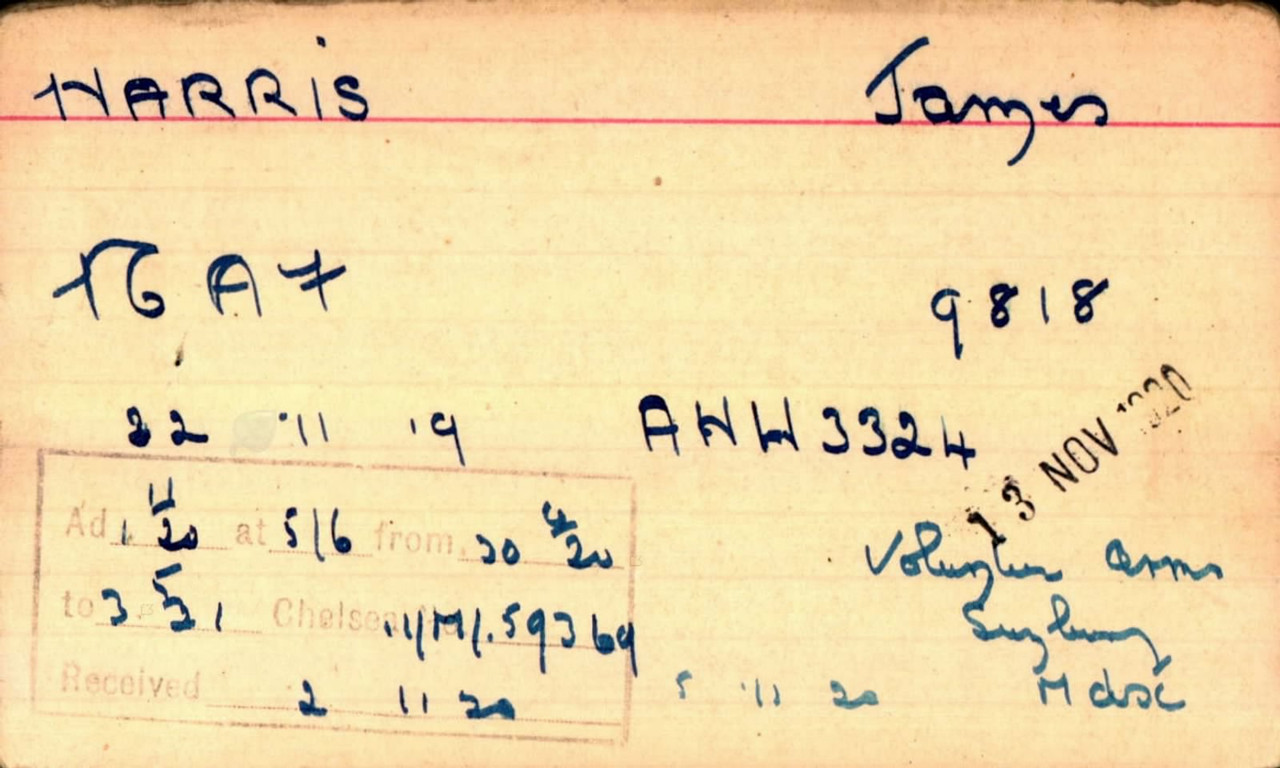 HARRIS James
16 A 7 9818
22 11 19 AHW 3324
13 NOV 1920
Ad 1 11/20 at 5/6 from 30 4/20
to 3 5/21 Chelsea No 11/M/.59369
Received 2 11 20
Volunteer Arms
Sunbury
Mdsx
5 11 20